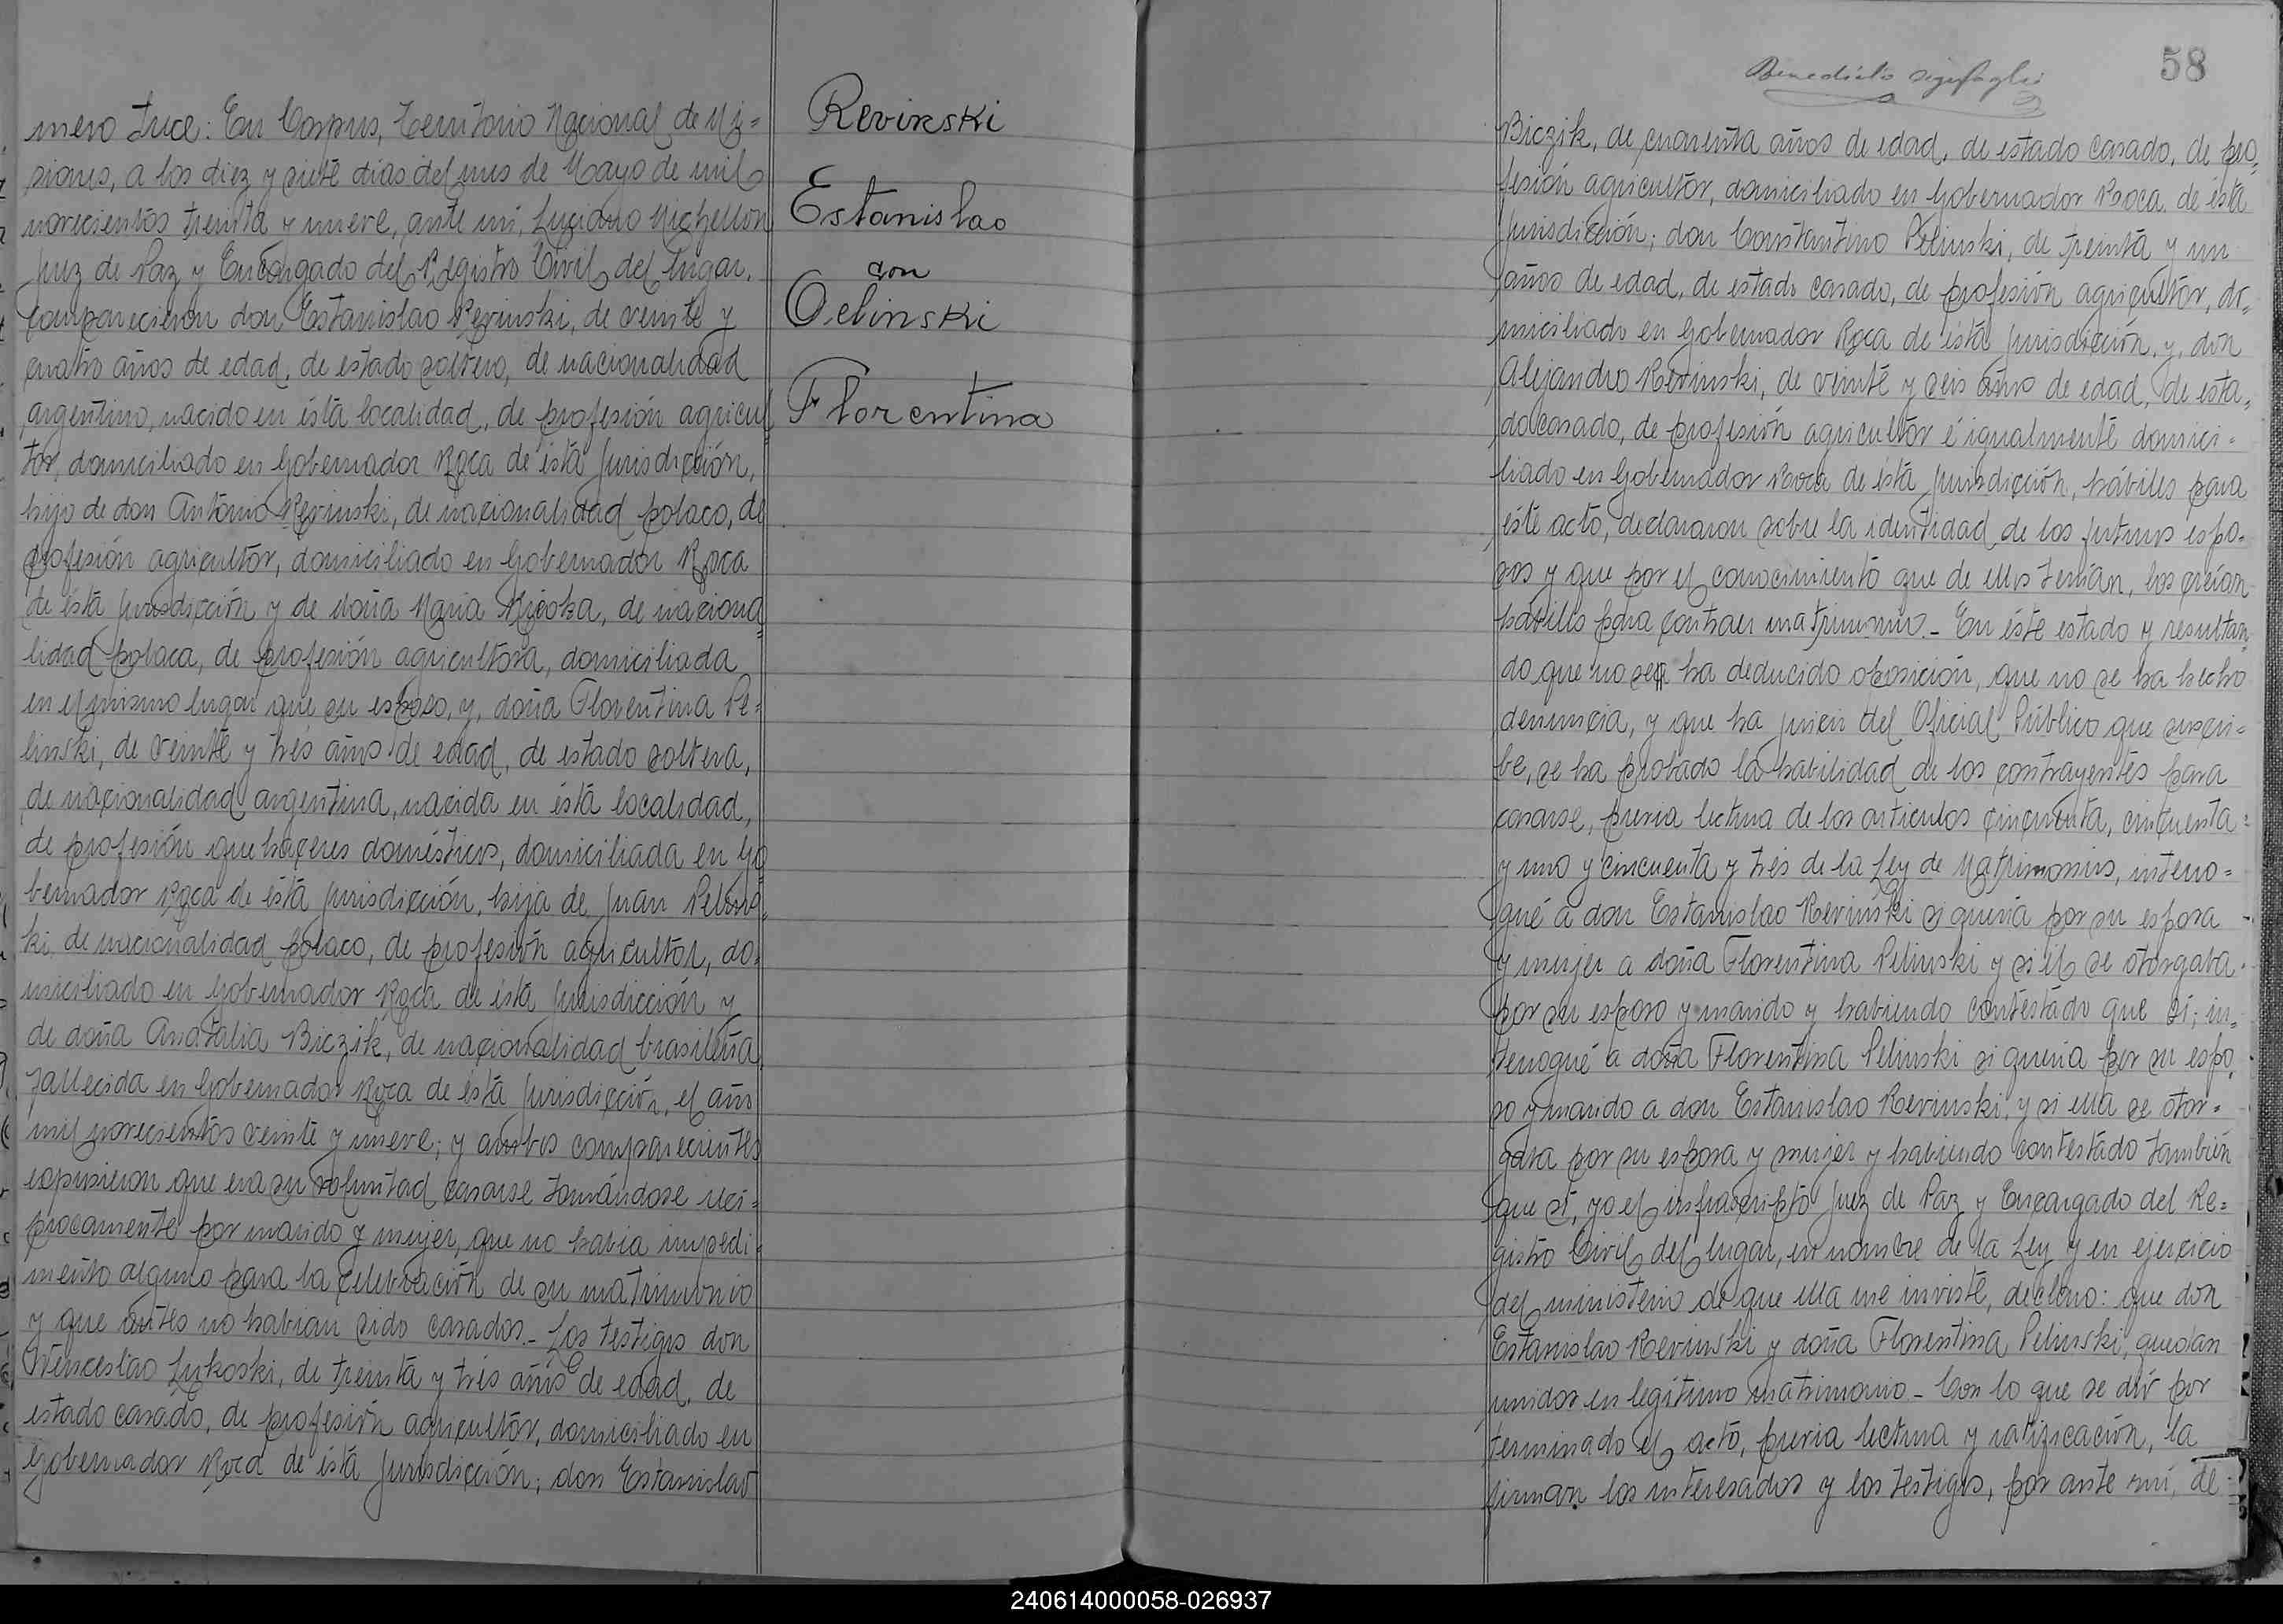 mero trece: En Corpus, Territorio Nacional de Mi=
siones, a los diez y siete días del mes de Mayo de mil
novecientos treinta y nueve, ante mí, Luciano Michellon
Juez de Paz y Encargado del Registro Civil del lugar,
comparecieron don Estanislao Revinski, de veinte y
cuatro años de edad, de estado soltero, de nacionalidad
argentino, nacido en ésta localidad, de profesión agricul
tor, domiciliado en Gobernador Roca de ésta jurisdicción,
hijo de don Antonio Revinski, de nacionalidad polaco, de
profesión agricultor, domiciliado en Gobernador Roca
de ésta jurisdicción y de doña Maria, de naciona
lidad polaca, de profesión agricultora, domiciliada
en el mismo lugar que su esposo, y, doña Florentina Pe=
linski, de veinte y trés años de edad, de estado soltera,
de nacionalidad argentina, nacida en ésta localidad,
de profesión quehaceres domésticos, domiciliada en Go
bernador Roca de ésta jurisdicción, hija de Juan Pelins=
ki, de nacionalidad polaco, de profesión agricultor, do=
miciliado en Gobernador Roca de ésta jurisdicción y
de doña Anatalia Biczik, de nacionalidad brasileña,
fallecida en Gobernador Roca de ésta jurisdicción, el año
mil novecientos veinte y nueve; y ambos comparecientes
expusieron que era su voluntad casarse tomándose recí=
procamente por marido y mujer, que no había impedi=
mento alguno para la celebración de su matrimonio
y que antes no habian sido casados.- Los testigos don
Wenceslao Lukoski, de treinta y trés años de edad, de
estado casado, de profesión agricultor, domiciliado en
Gobernador Roca de ésta jurisdicción; don Estanislao
Revinski
Estanislao
con
Pelinski
Florentina
58
Benedicto
Biczik, de cuarenta años de edad, de estado casado, de pro=
fesión agricultor, domiciliado en Gobernador Roca de ésta
jurisdicción; don Constantino Pelinski, de treinta y un
años de edad, de estado casado, de profesión agricultor, do=
miciliado en Gobernador Roca de ésta jurisdicción, y, don
Alejandro Revinski, de veinte y seis años de edad, de esta=
do casado, de profesión agricultor é igualmente domici=
liado en Gobernador Roca de ésta jurisdicción, hábiles para
éste acto, declararon sobre la identidad de los futuros espo=
sos y que por el conocimiento que de ellos tenían, los creían
habiles para contraer matrimonio.- En éste estado y resultan
do que no se ha deducido oposición, que no se ha hecho
denuncia, y que ha juicio del Oficial Público que suscri=
be, se ha probado la habilidad de los contrayentes para
casarse, previa lectura de los artículos cincuenta, cincuenta=
y uno y cincuenta y trés de la Ley de Matrimonios, interro=
gué a don Estanislao Revinski si quería por su esposa
y mujer a doña Florentina Pelinski y si él se otorgaba
por su esposo y marido y habiendo contestado que sí; in=
terrogué a doña Florentina Pelinski si quería por su espo=
so y marido a don Estanislao Revinski, y si ella se otor=
gaba por su esposa y mujer y habiendo contestado también
que sí, yo el infrascripto Juez de Paz y Encargado del Re=
gistro Civil del lugar, en nombre de la Ley y en ejercicio
del ministerio de que ella me inviste, declaro: que don
Estanislao Revinski y doña Florentina Pelinski, quedan
unidos en legítimo matrimonio.- Con lo que se dió por
terminado el acto, previa lectura y ratificación, la
firman los interesados y los testigos, por ante mí, de=
240614000058-026937